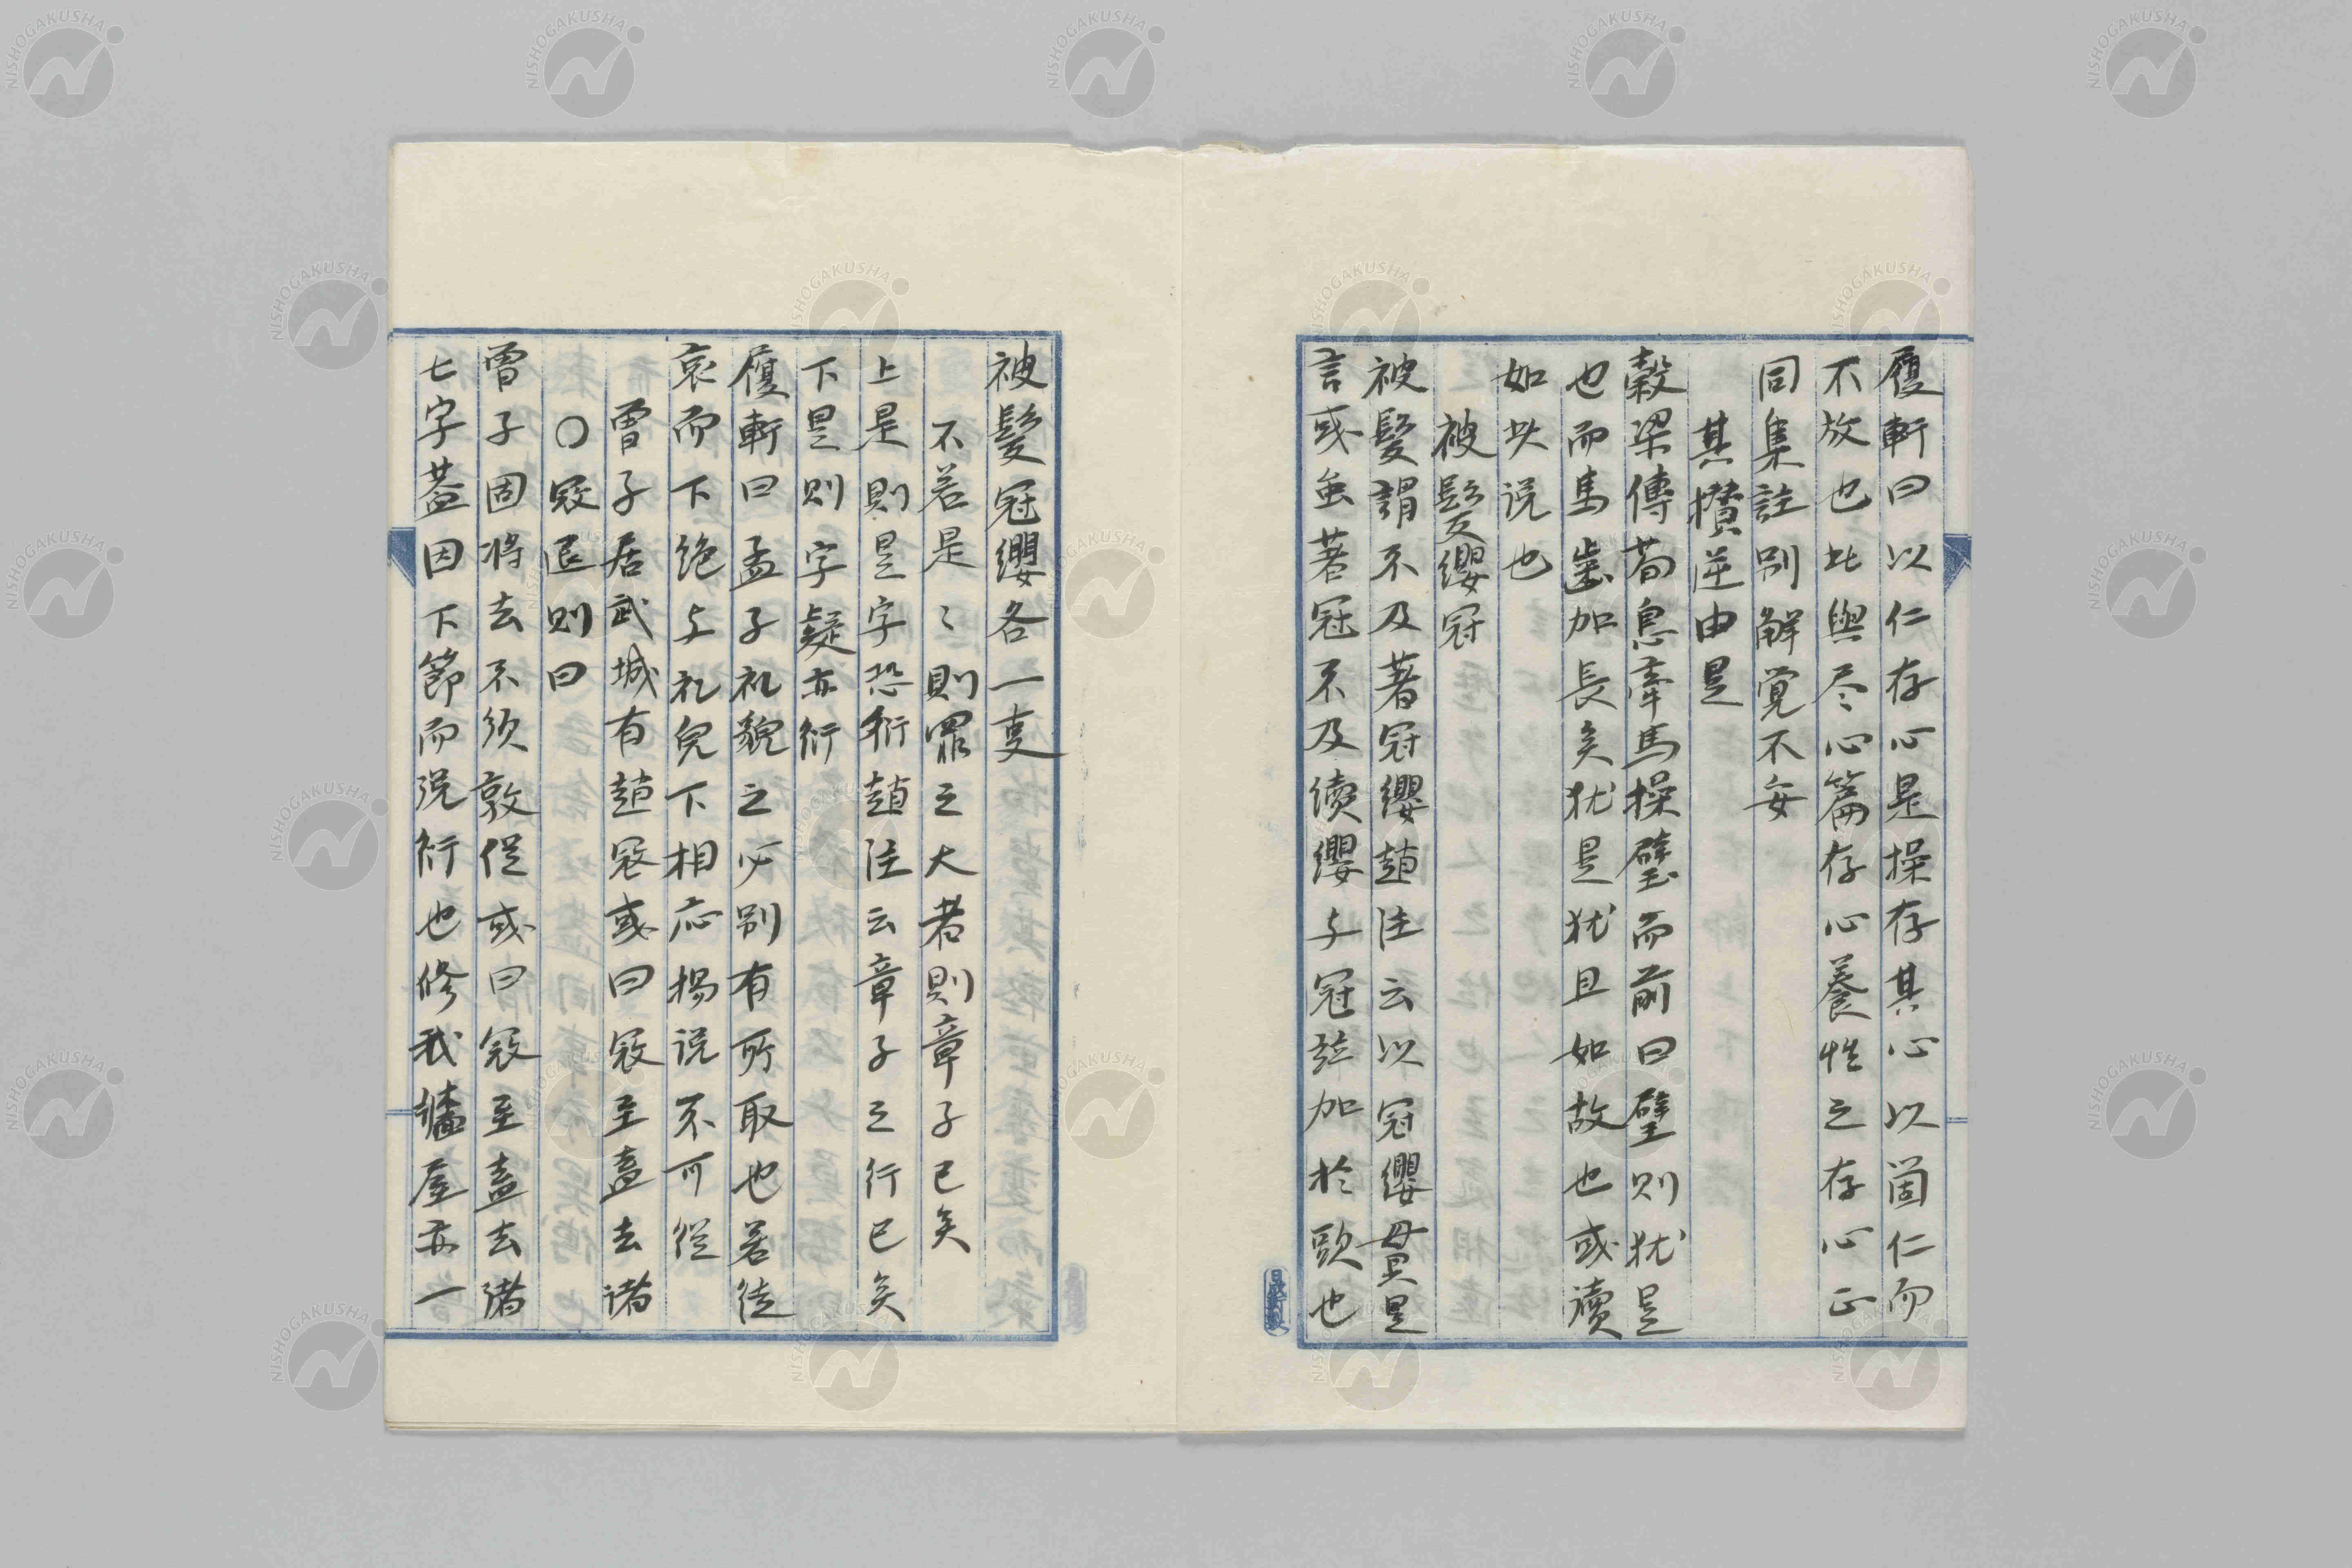 履軒曰以仁存心是操存其心以箇仁而
不放也此與尽心篇存心養性之存心正
同集註別解覚不妥
其横逆由是
穀梁傳荀息牽馬操璧而前曰璧則犹是
也而馬歯加長矣犹是犹且如故也或讀
如此説也
被髮纓冠
被髮謂不及著冠纓趙注云以冠纓貫是
言或虽著冠不及續纓与冠並加於頭也
被髮冠纓各一事
不若是〻則罪之大者則章子已矣
上是則是字恐衍趙注云章子之行已矣
下是則字疑亦衍
履軒曰孟子礼貌之必別有所取也若徒
哀而下絶与礼皃下相応楊説不可從
曽子居武城有越寇或曰寇至盍去諸
○寇退則曰
曽子固将去不須敦促或曰寇至盍去諸
七字葢因下節而説衍也修我牆屋亦一
NISHOGAKUSHA